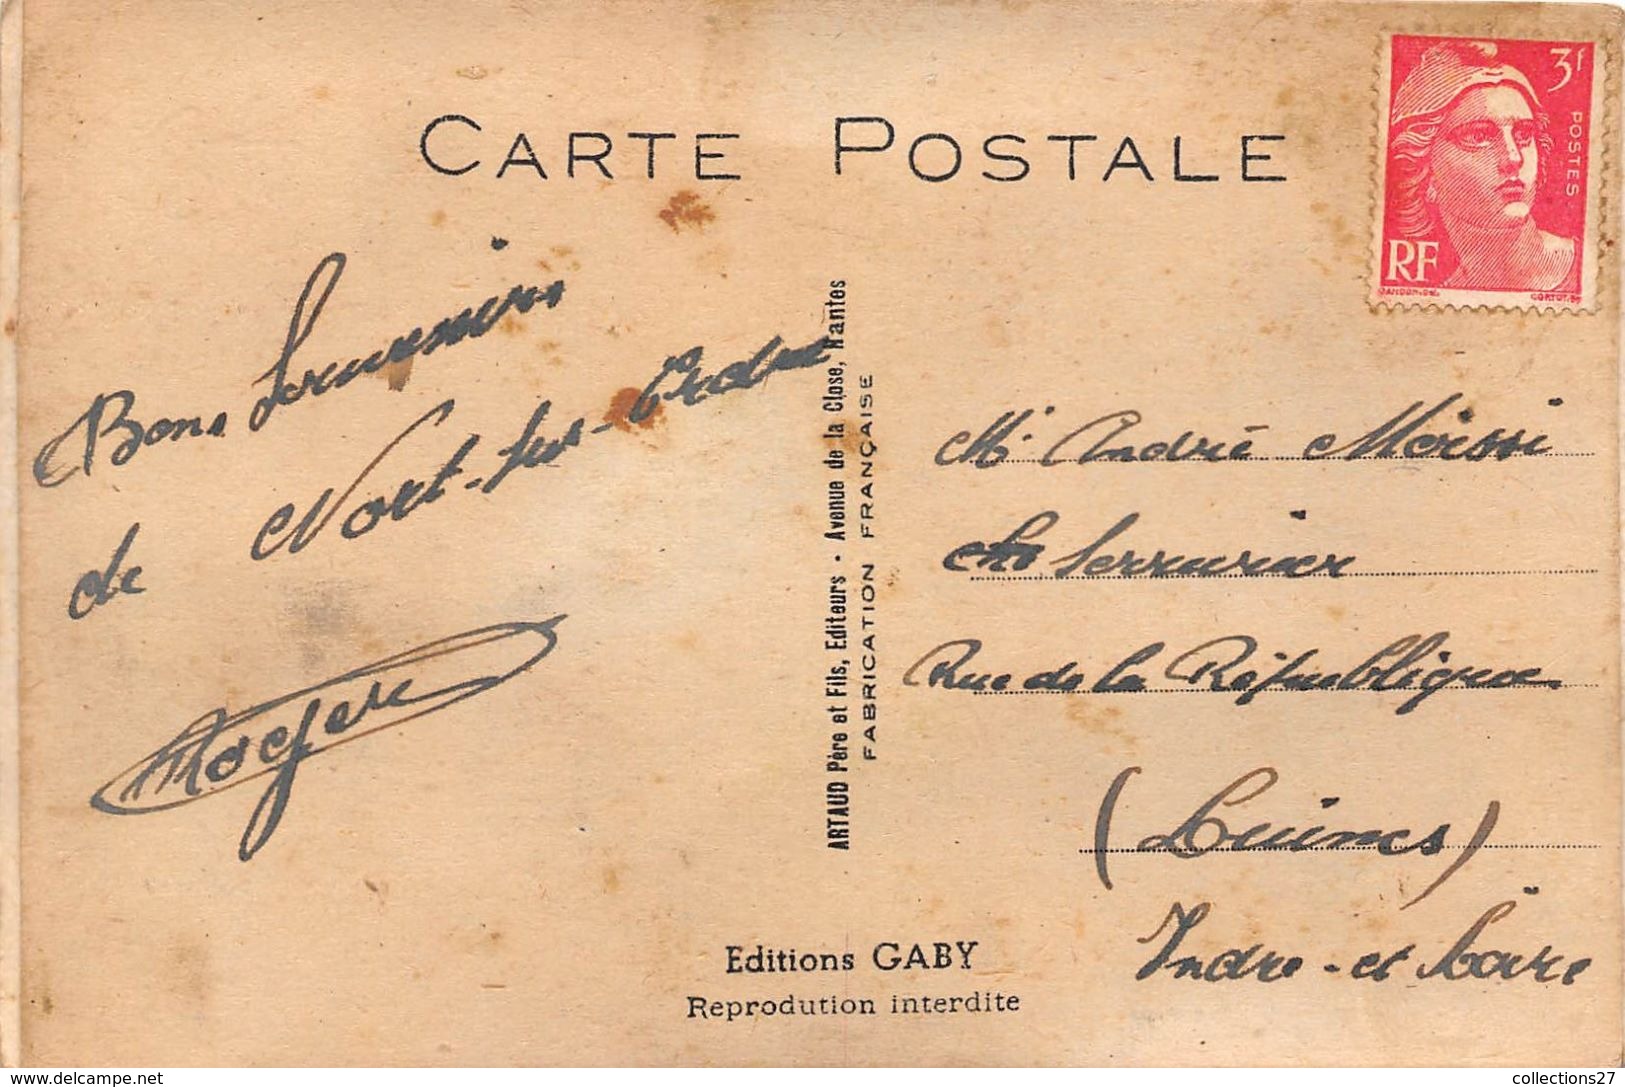 CARTE POSTALE
3f
POSTES
RF
GANDON DEL.
CORTOT SC
Bons Souvenirs
de Nort-sur-Erdre
Roger
ARTAUD Père et Fils, Editeurs - Avenue de la Close, Nantes
FABRICATION FRANÇAISE
Mr André
Serrurier
Rue de la République
(Luines)
Indre-et Loire
Editions GABY
Reprodution interdite
www.delcampe.net
collections27